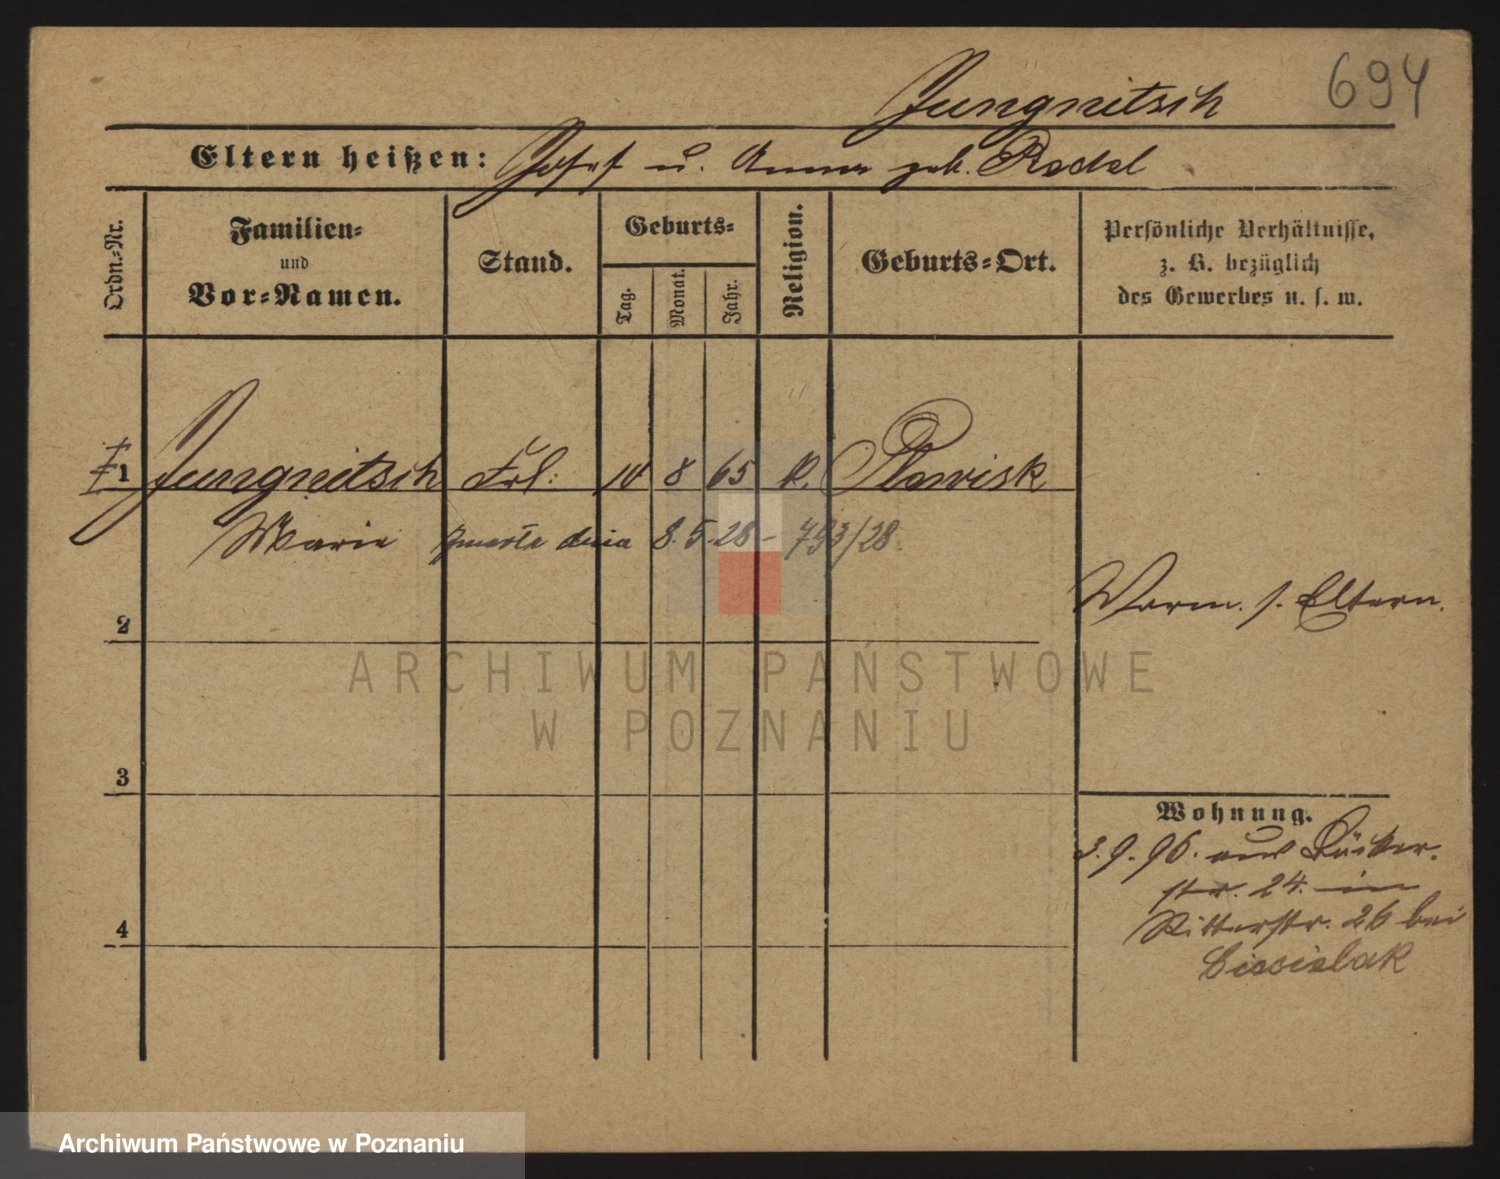 694
Jungnitsch
Eltern heißen: Josef u. Anna geb. Redel
Ordn.-Nr.
Familien-
und
Vor-Namen.
Stand.
Geburts-
Tag.
Monat.
Jahr.
Religion.
Geburts-Ort.
Persönliche Verhältnisse,
z. B. bezüglich
des Gewerbes u. s. w.
1 Jungnitsch Frl: 10 8 65 K.
Marie zmarła dnia 8.5.28 - 793/28
Verm. s. Eltern.
2
3
4
Wohnung.
3.9.96. aus Bäcker-
str. 24. in
Ritterstr. 26 bei
ARCHIWUM PAŃSTWOWE
W POZNANIU
Archiwum Państwowe w Poznaniu